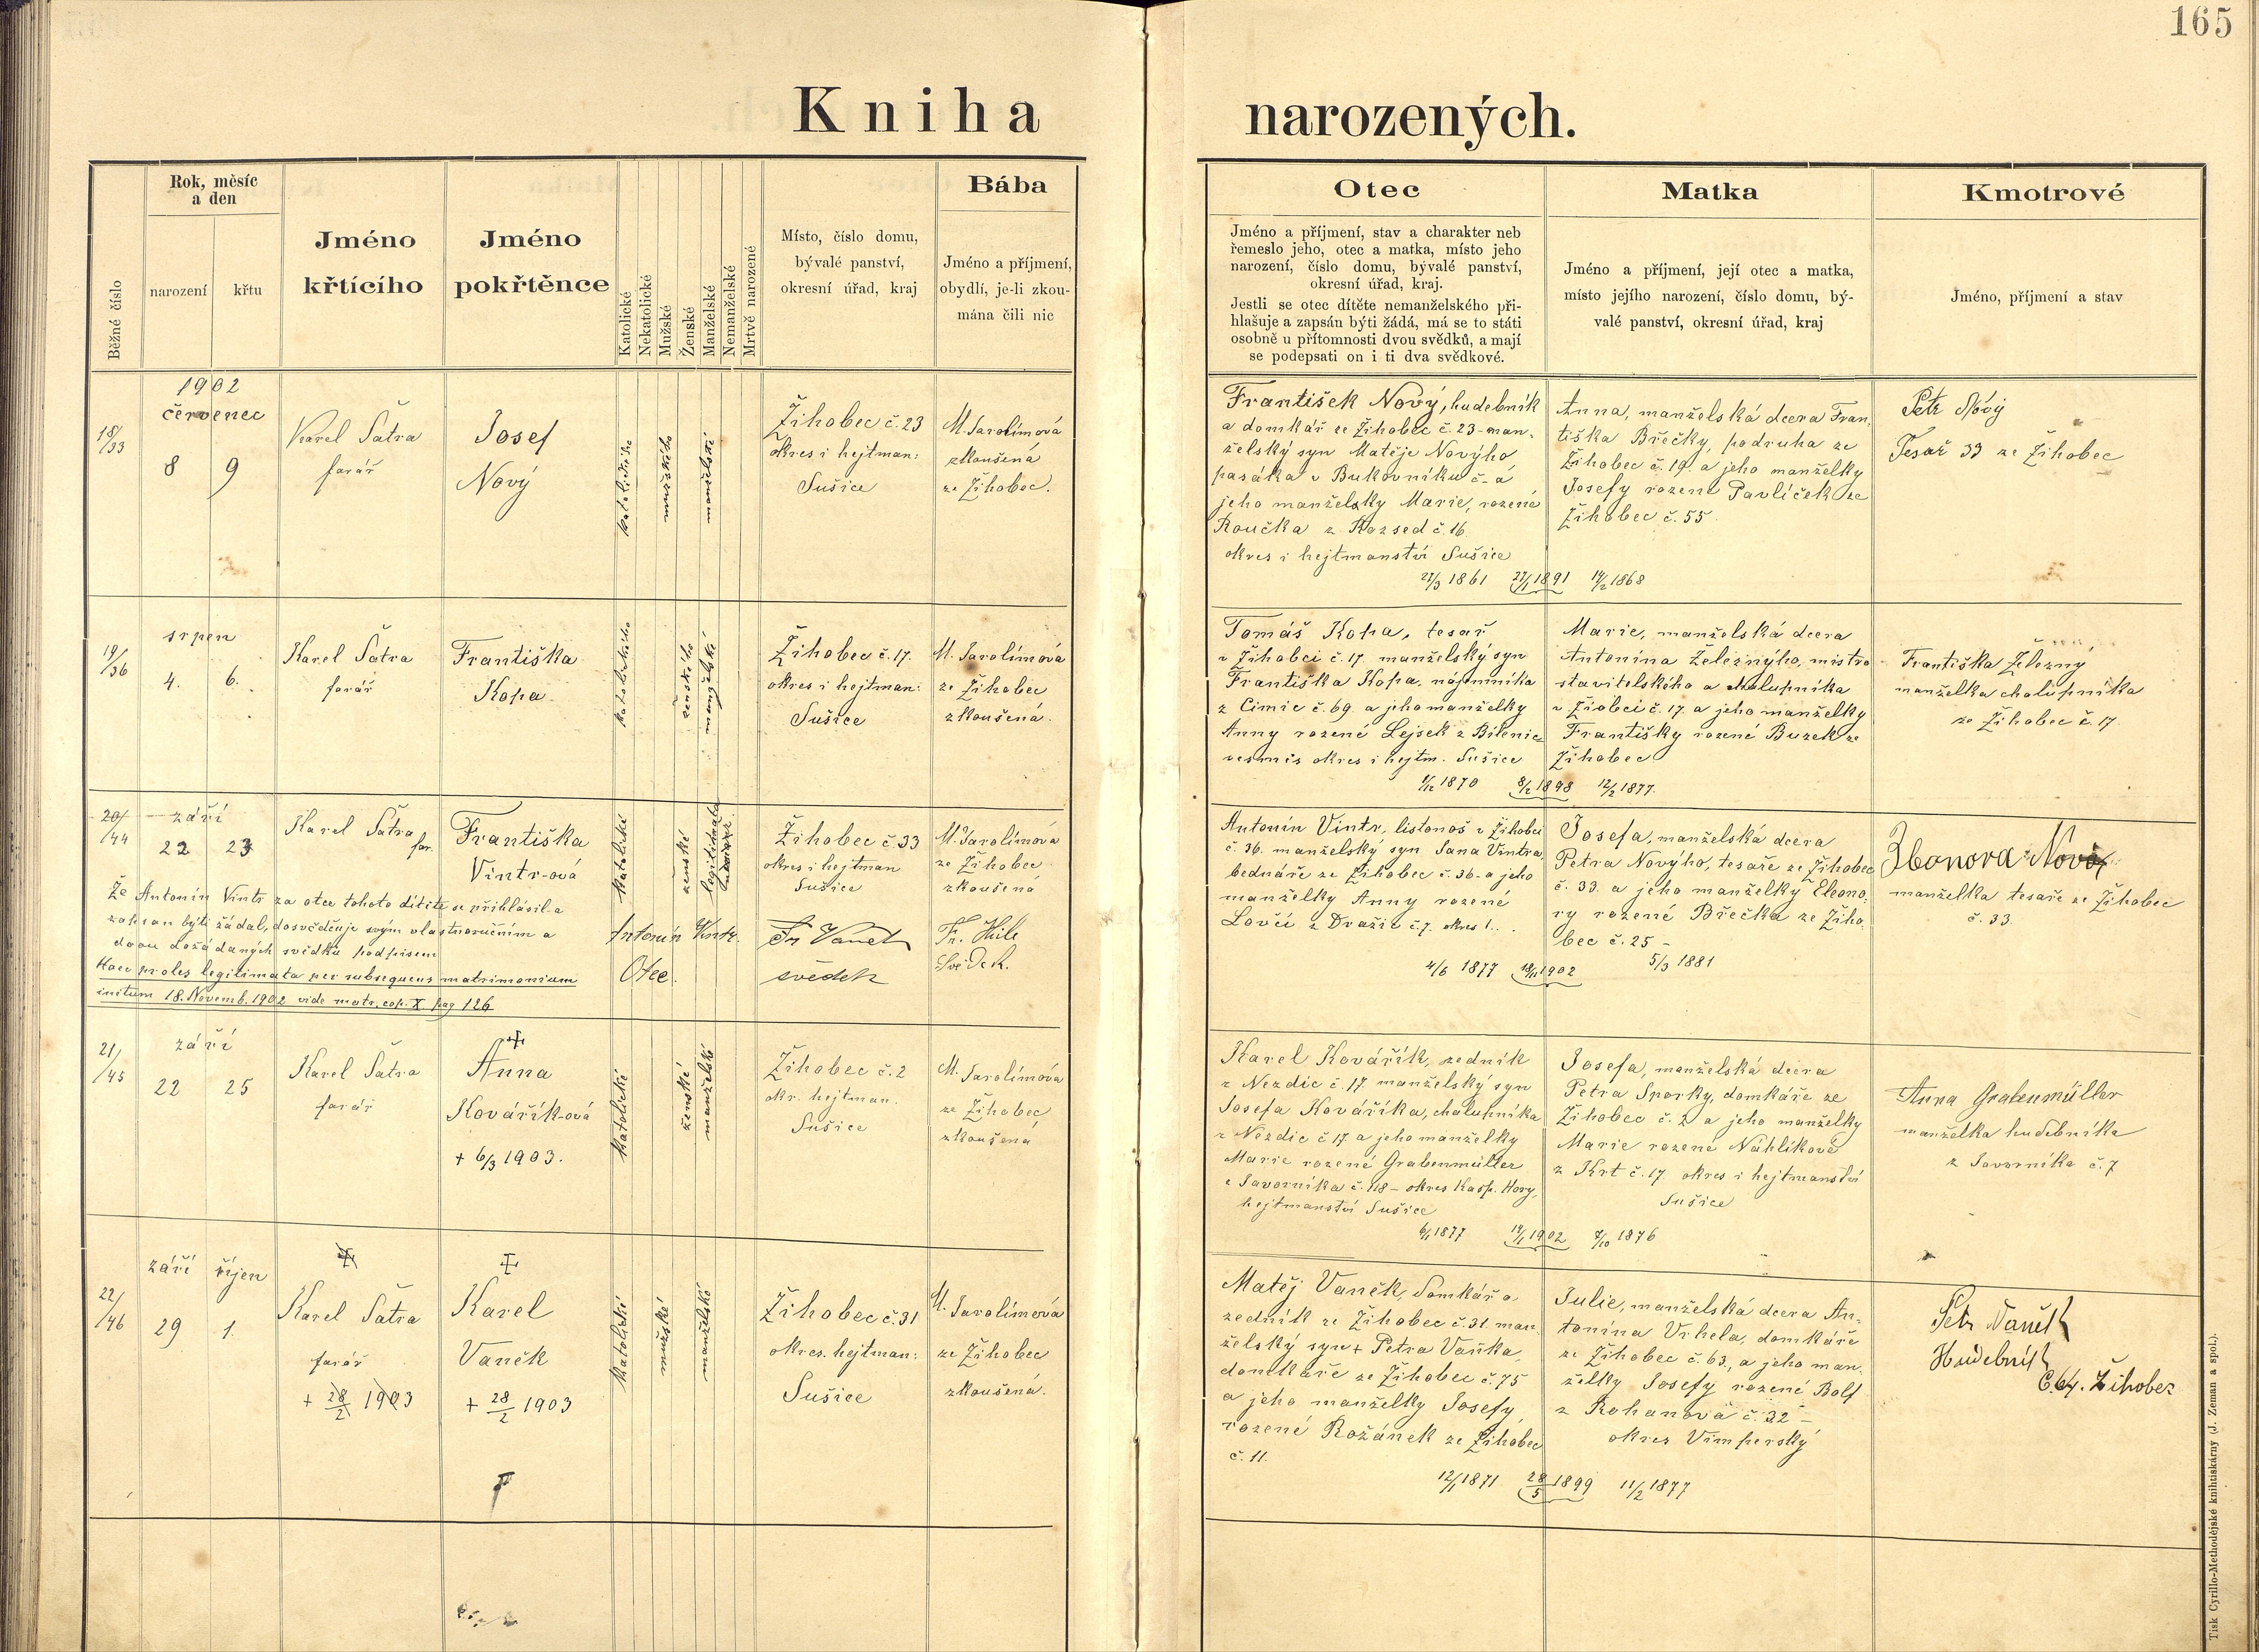 165
Kniha narozených.
Běžné číslo
Rok, měsíc
a den
narození
křtu
Jméno
křtícího
Jméno
pokřtěnce
Katolické
Nekatolické
Mužské
Ženské
Manželské
Nemanželské
Mrtvě narozené
Místo, číslo domu,
bývalé panství,
okresní úřad, kraj
Bába
Jméno a příjmení,
obydlí, je-li zkou-
mána čili nic
Otec
Jméno a příjmení, stav a charakter neb
řemeslo jeho, otec a matka, místo jeho
narození, číslo domu, bývalé panství,
okresní úřad, kraj.
Jestli se otec dítěte nemanželského při-
hlašuje a zapsán býti žádá, má se to státi
osobně u přítomnosti dvou svědků, a mají
se podepsati on i ti dva svědkové.
Matka
Jméno a příjmení, její otec a matka,
místo jejího narození, číslo domu, bý-
valé panství, okresní úřad, kraj
Kmotrové
Jméno, příjmení a stav
18/33
1902
červenec
8
9
Karel Šatra
farář
Josef
Nový
katolického
mužského
manželské
Žihobec č. 23
okres i hejtman:
Sušice
M. Jarolímová
zkoušená
ze Žihobec.
František Nový, hudebník
a domkář ze Žihobec č. 23 - man-
želský syn Matěje Novýho
pasáka v Bukovníku č - a
jeho manželky Marie, rozené
Roučka z Rozsed č. 16
okres i hejtmanství Sušice
27/3 1861 27/1 1891 14/2 1868
Anna, manželská dcera Fran-
tiška Břečky, podruha ze
Žihobec č. 19. a jeho manželky
Josefy rozené Pavlíček ze
Žihobec č. 55
Petr Nový
Tesař 33 ze Žihobec
19/36
srpen
4.
6.
Karel Šatra
farář
Františka
Kopa
katolického
ženského
manželské
Žihobec č. 17.
okres i hejtman:
Sušice
M. Jarolímová
ze Žihobec
zkoušená.
Tomáš Kopa, tesař
v Žihobci č. 17 manželský syn
Františka Kopa, nájemníka
z Čimic č. 69. a jeho manželky
Anny rozené Lejsek z Bilenic
vesměs okres i hejtm. Sušice
1/12 1870 8/2 1898 12/2 1877.
Marie, manželská dcera
Antonína Železnýho, mistra
stavitelského a chalupníka
v Žiobci č. 17. a jeho manželky
Františky rozené Buzek ze
Žihobec
Františka Železný
manželka chalupníka
ze Žihobec č. 17.
20/44
září
22
23
Karel Šatra
far.
Františka
Vintr-ová
katolické
ženské
legitimata
Žihobec č. 33
okres i hejtman
Sušice
M. Jarolímová
ze Žihobec
zkoušená
Že Antonín Vintr za otce tohoto dítěte se přihlásil a
zapsan býti žádal, dosvědčuje svým vlastnoručním a
dvou dožádaných svědků podpisem
Haec proles legitimata per subsequens matrimonium
initum 18. Novemb. 1902 vide matr. cop. X. pag 126
Antonín Vintr.
Otec.
Fr. Vaněk
svědek
Fr.
Svědek.
Antonín Vintr, listonoš v Žihobci
č. 36. manželský syn Jana Vintra,
bednáře ze Žihobec č. 36 - a jeho
manželky Anny rozené
Lovčí z Dražic č. 7. okres
4/6 1877 18/11 1902 5/3 1881
Josefa, manželská dcera
Petra Novýho, tesaře ze Žihobec
č. 33. a jeho manželky Eleono-
ry rozené Břečka ze Žiho-
bec č. 25 -
Nová
manželka tesaře ze Žihobec
č. 33.
21/45
září
22
25
Karel Šatra
farář
Anna
Kovářík-ová
+ 6/3 1903.
katolické
ženské
manželské
Žihobec č. 2
okr. hejtman.
Sušice
M. Jarolímová
ze Žihobec
zkoušená
Karel Kovářík, zedník
z Nezdic č 17 manželský syn
Josefa Kováříka, chalupníka
z Nezdic č 17. a jeho manželky
Marie rozené Grabenmüller
z Javorníka č. 118 - okres Kašp. Hory,
hejtmanství Sušice
6/1 1877 14/1 1902 7/10 1876
Josefa, manželská dcera
Petra Snorky, domkáře ze
Žihobec č. 2 a jeho manželky
Marie rozené Náhlíkové
z Krt č. 17. okres i hejtmanství
Sušice
Anna Grabenmüller
manželka hudebníka
z Javorníka č. 7
22/46
září
říjen
29
1.
Karel Šatra
farář
+ 28/2 1903
Karel
Vaněk
+ 28/2 1903
katolické
mužské
manželské
Žihobec č. 31
okres. hejtman:
Sušice
M. Jarolímová
ze Žihobec
zkoušená.
Matěj Vaněk, domkář a
zedník ze Žihobec č. 31. man-
želský syn + Petra Vaňka,
domkáře ze Žihobec č. 75
a jeho manželky Josefy,
rozené Rožánek ze Žihobec
č. 11.
12/1 1871 28/5 1899 11/2 1877
Julie, manželská dcera An-
tonína Vrhela, domkáře
ze Žihobec č. 63., a jeho man-
želky Josefy rozené Bolf
z Rohanová č. 32 -
okres Vimperský
Petr Vaněk
Hudebník
Č. 64. Žihobec
Tisk Cyrillo-Methodějské knihtiskárny (J. Zeman a spol.).